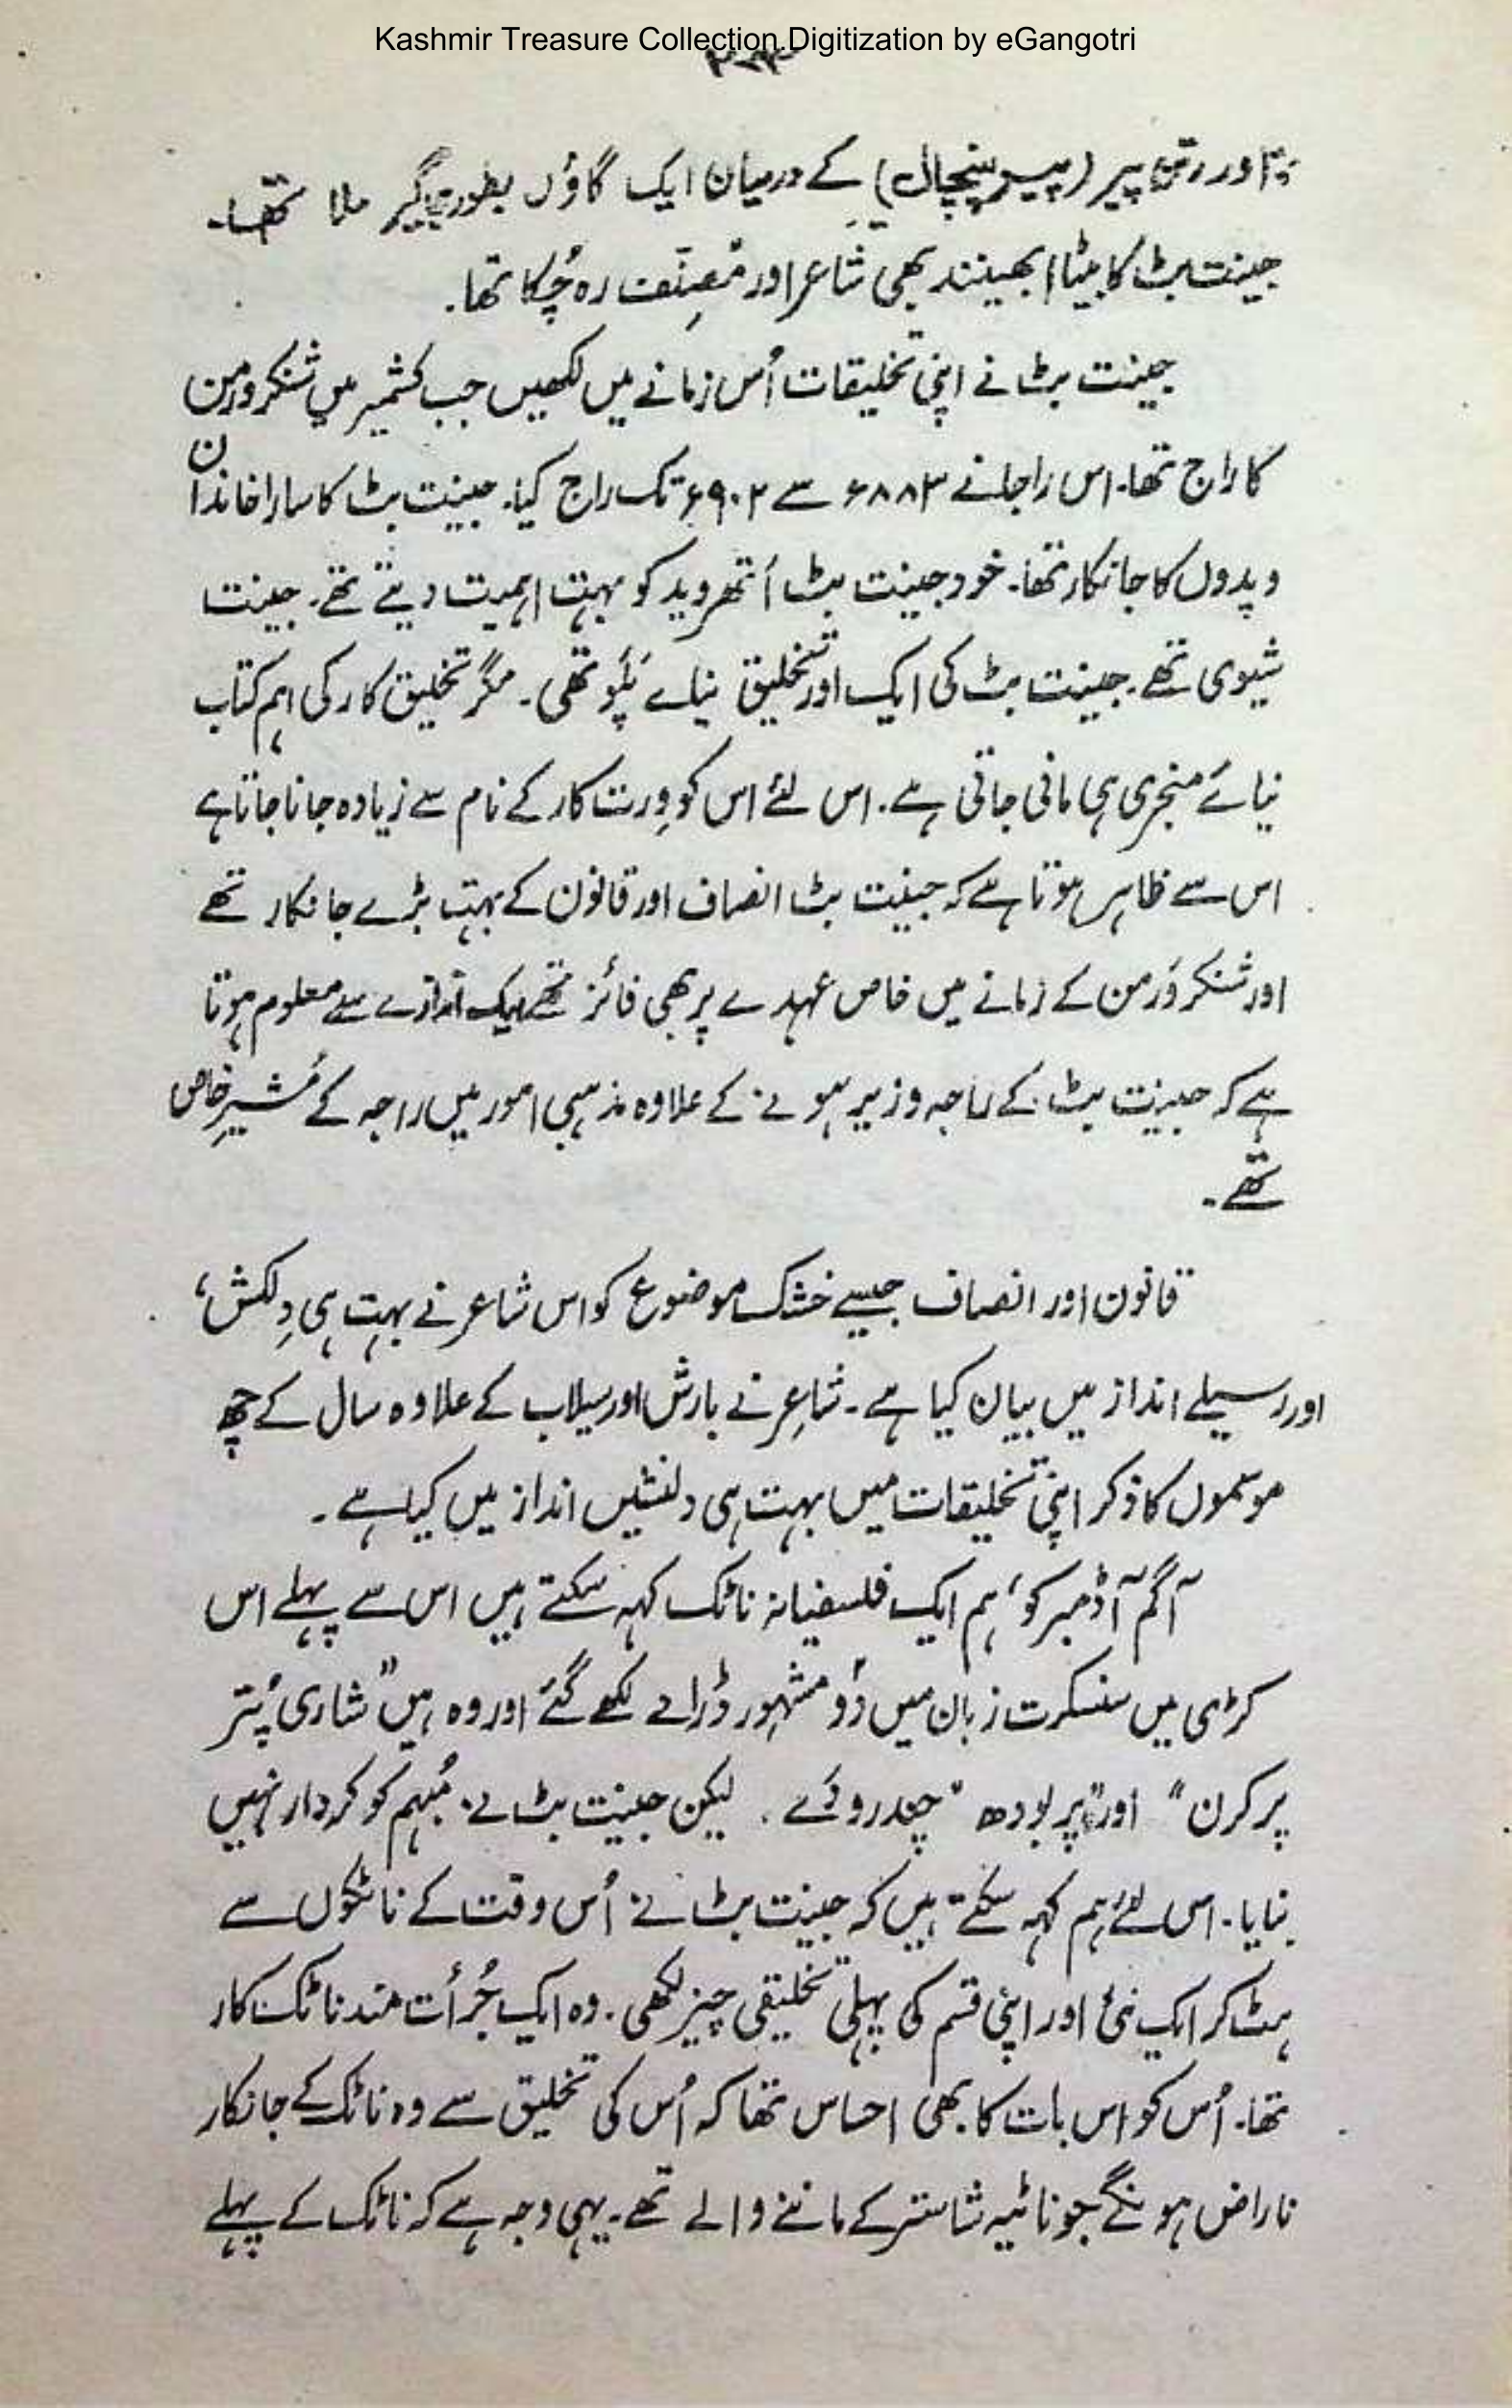 Kashmir Treasure Collection.Digitization by eGangotri
اور رتن پیر (پیر پنچال) کے درمیان ایک گاؤں بطور جاگیر ملا تھا۔
جینت بٹ کا بیٹا ابھینند بھی شاعر اور مُصنِّف رہ چُکا تھا۔
جینت بٹ نے اپنی تخلیقات اُس زمانے میں لکھیں جب کشمیر میں شنکرورمن
کا راج تھا۔ اس راجا نے ۸۸۳ء سے ۹۰۲ء تک راج کیا۔ جینت بٹ کا سارا خاندان
ویدوں کا جانکار تھا۔ خود جینت بٹ اَتھروید کو بہت اہمیت دیتے تھے۔ جینت
شیوی تھے۔ جینت بٹ کی ایک اور تخلیق نیاے پَلَو تھی۔ مگر تخلیق کار کی اہم کتاب
نیائے منجری ہی مانی جاتی ہے۔ اس لئے اس کو وِرت کار کے نام سے زیادہ جانا جاتا ہے
اس سے ظاہر ہوتا ہے کہ جینت بٹ انصاف اور قانون کے بہت بڑے جانکار تھے
اور شنکر وَرمن کے زمانے میں خاص عہدے پر بھی فائز تھے ایک اندازے سے معلوم ہوتا
ہے کہ جینت بٹ کے راجہ وزیر ہونے کے علاوہ مذہبی امور میں راجہ کے مُشیرِ خاص
تھے۔
قانون اور انصاف جیسے خشک موضوع کو اس شاعر نے بہت ہی دِلکش،
اور رسیلے انداز میں بیان کیا ہے۔ شاعِر نے بارش اور سیلاب کے علاوہ سال کے چھ
موسموں کا ذکر اپنی تخلیقات میں بہت ہی دلنشیں انداز میں کیا ہے۔
آگم آڈمبر کو، ہم ایک فلسفیانہ ناٹک کہہ سکتے ہیں اس سے پہلے اس
کڑی میں سنسکرت زبان میں دُو مشہور ڈرامے لکھے گئے اور وہ ہیں ”شاری پُتر
پرکرن“ اور ”پربودھ “چندرودَے ۔ لیکن جینت بٹ نے مُبہم کو کردار نہیں
بنایا۔ اس لئے ہم کہہ سکتے ہیں کہ جینت بٹ نے اُس وقت کے ناٹکوں سے
ہٹ کر ایک نئی اور اپنی قسم کی پہلی تخلیقی چیز لکھی۔ وہ ایک جُرأت مند ناٹک کار
تھا۔ اُس کو اس بات کا بھی احساس تھا کہ اُس کی تخلیق سے وہ ناٹک کے جانکار
ناراض ہونگے جو ناٹیہ شاستر کے ماننے والے تھے۔ یہی وجہ ہے کہ ناٹک کے پہلے